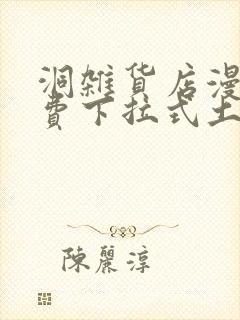 洞雑貨店漫
費下拉式土
陳麗淳